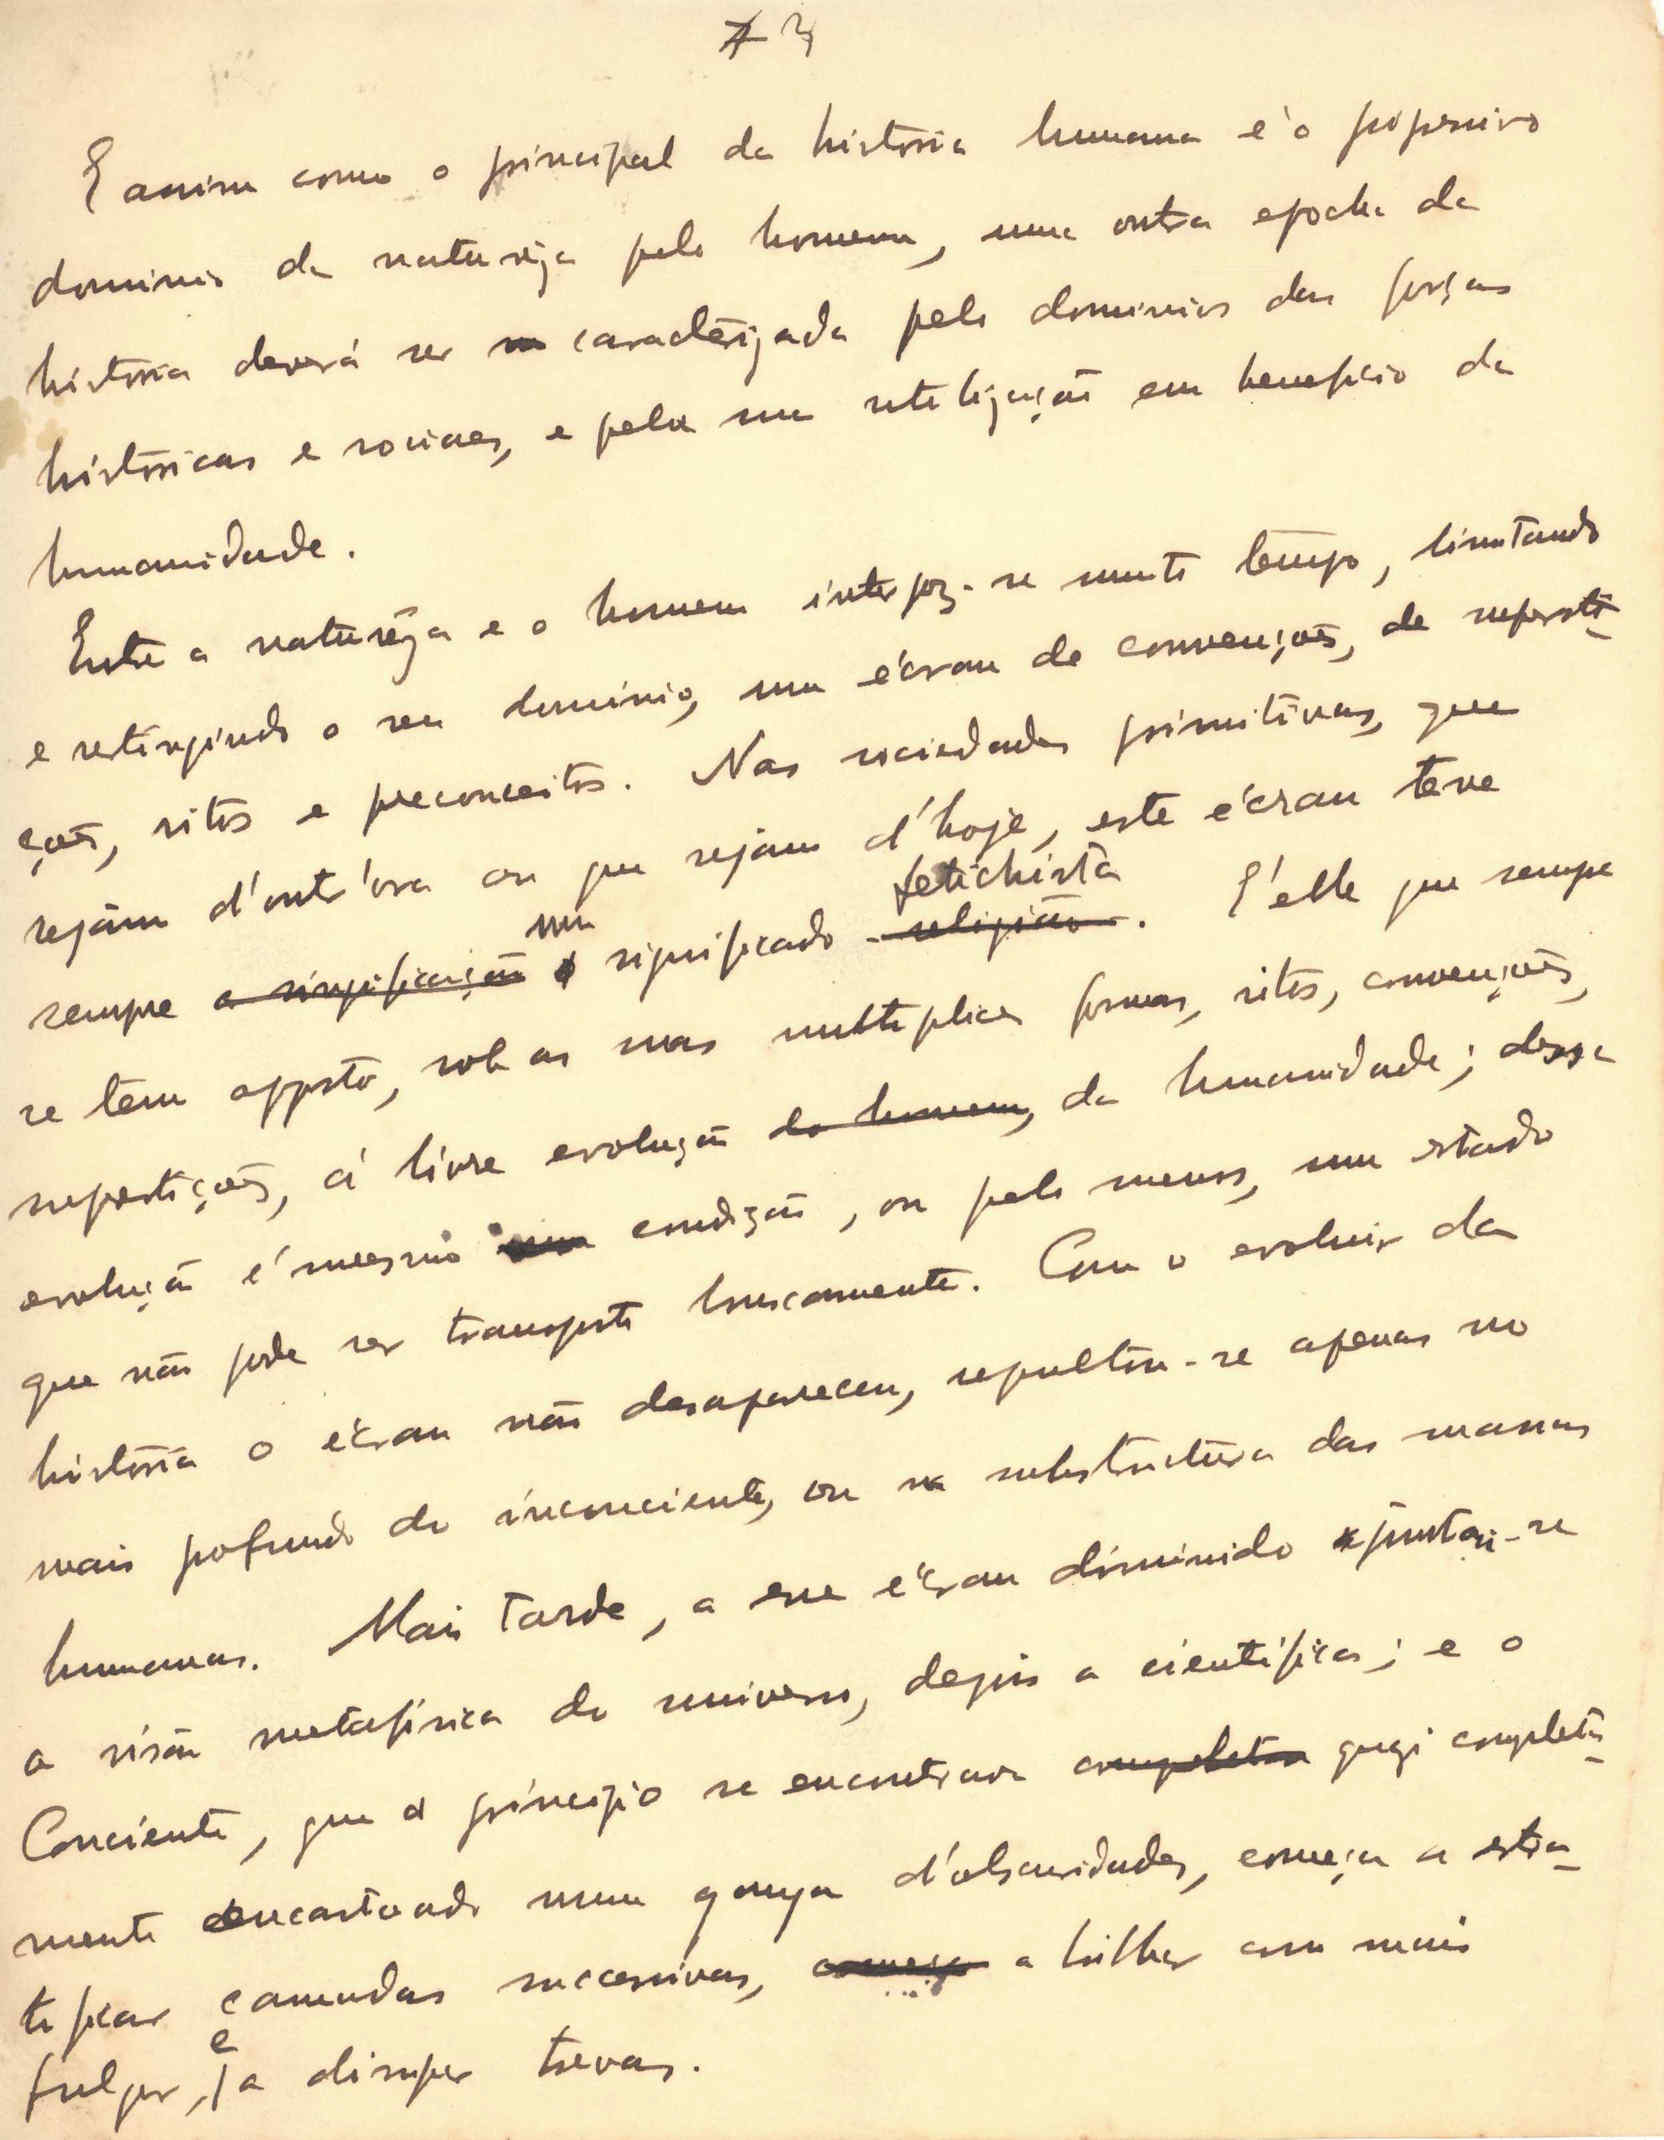 3
E assim como o principal da historia humana é o progressivo
dominio da natureza pelo homem, uma outra epocha da
historia deverá ser caracterizada pelo dominios das forças
históricas e sociaes, e pela sua utilização em beneficio da
humanidade.
Entre a natureza e o homem interpoz-se muito tempo, limitando
e restringindo o seu dominio, um écran de convenções, de supersti-
ções, ritos e preconceitos. Nas sociedades primitivas, que
sejam d'outr'ora ou que sejam d'hoje, este écran teve
sempre a significação um significado religião fetichista. E' elle que sempre
se tem opposto, sob as mas multiplices formas, ritos, convenções,
superstições, á livre evolução do homem, da humanidade; dessa
evolução é mesmo uma condição, ou pelo menos, um estado
que não pode ser transposto bruscamente. Com o evoluir da
história o écran não desapareceu, sepultou-se apenas no
mais profundo do inconciente, ou na substructura das massas
humanas. Mais tarde, a esse écran diminuido ajuntou-se
a visão metafisica do universo, depois a cientifica; e o
Conciente, que a principio se encontrava completa quazi completa-
mente encastoado numa ganga d'obscuridades, começa a estra-
tificar camadas successivas, começa a brilhar com mais
fulgor, e a dissipar trevas.